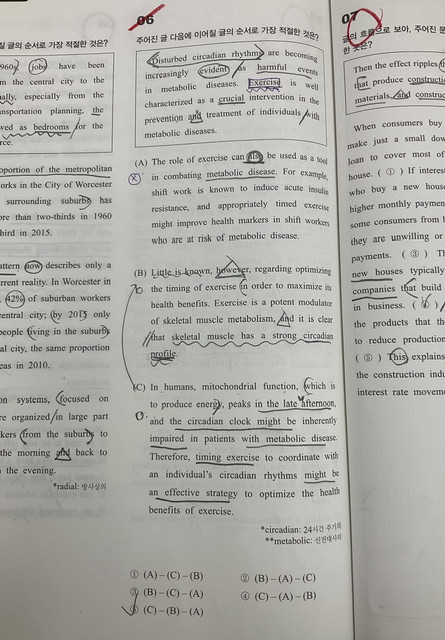 질 글의 순서로 가장 적절한 것은?
960s, jobs have been
m the central city to the
ally, especially from the
nsportation planning, the
wed as bedrooms for the
rce.
oportion of the metropolitan
orks in the City of Worcester
surrounding suburbs has
ore than two-thirds in 1960
hird in 2015.
attern now describes only a
rrent reality. In Worcester in
42% of suburban workers
entral city; by 2015 only
people living in the suburbs
al city, the same proportion
eas in 2010.
on systems, focused on
re organized in large part
kers from the suburbs to
the morning and back to
the evening.
*radial: 방사상의
06
주어진 글 다음에 이어질 글의 순서로 가장 적절한 것은?
Disturbed circadian rhythms are becoming
increasingly evident as harmful events
in metabolic diseases. Exercise is well
characterized as a crucial intervention in the
prevention and treatment of individuals with
metabolic diseases.
(A) The role of exercise can also be used as a tool
in combating metabolic disease. For example,
shift work is known to induce acute insulin
resistance, and appropriately timed exercise
might improve health markers in shift workers
who are at risk of metabolic disease.
(B) Little is known, however, regarding optimizing
the timing of exercise in order to maximize its
health benefits. Exercise is a potent modulator
of skeletal muscle metabolism, And it is clear
that skeletal muscle has a strong circadian
profile.
(C) In humans, mitochondrial function, which is
to produce energy, peaks in the late afternoon,
and the circadian clock might be inherently
impaired in patients with metabolic disease.
Therefore, timing exercise to coordinate with
an individual's circadian rhythms might be
an effective strategy to optimize the health
benefits of exercise.
*circadian: 24시간 주기의
**metabolic: 신진대사의
① (A)-(C)-(B) ② (B)-(A)-(C)
③ (B)-(C)-(A) ④ (C)-(A)-(B)
⑤ (C)-(B)-(A)
07
글의 흐름으로 보아, 주어진 문
한 곳은?
Then the effect ripples
that produce construction
materials, and construc
When consumers buy
make just a small dow
loan to cover most of
house. ( ① ) If interest
who buy a new house
higher monthly paymen
some consumers from b
they are unwilling or
payments. ( ③ ) Th
new houses typically
companies that build
in business. ( ④ )
the products that th
to reduce production
( ⑤ ) This explains
the construction indu
interest rate movem